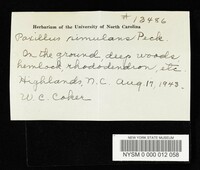 #13456
Herbarium of the University of North Carolina
Paxillus simulans Peck.
On the ground deep woods,
hemlock rhododendron, etc
Highlands, N.C. Aug. 17, 1943.
W. C. Coker
NEW YORK STATE MUSEUM
NYSM 0 000 012 058